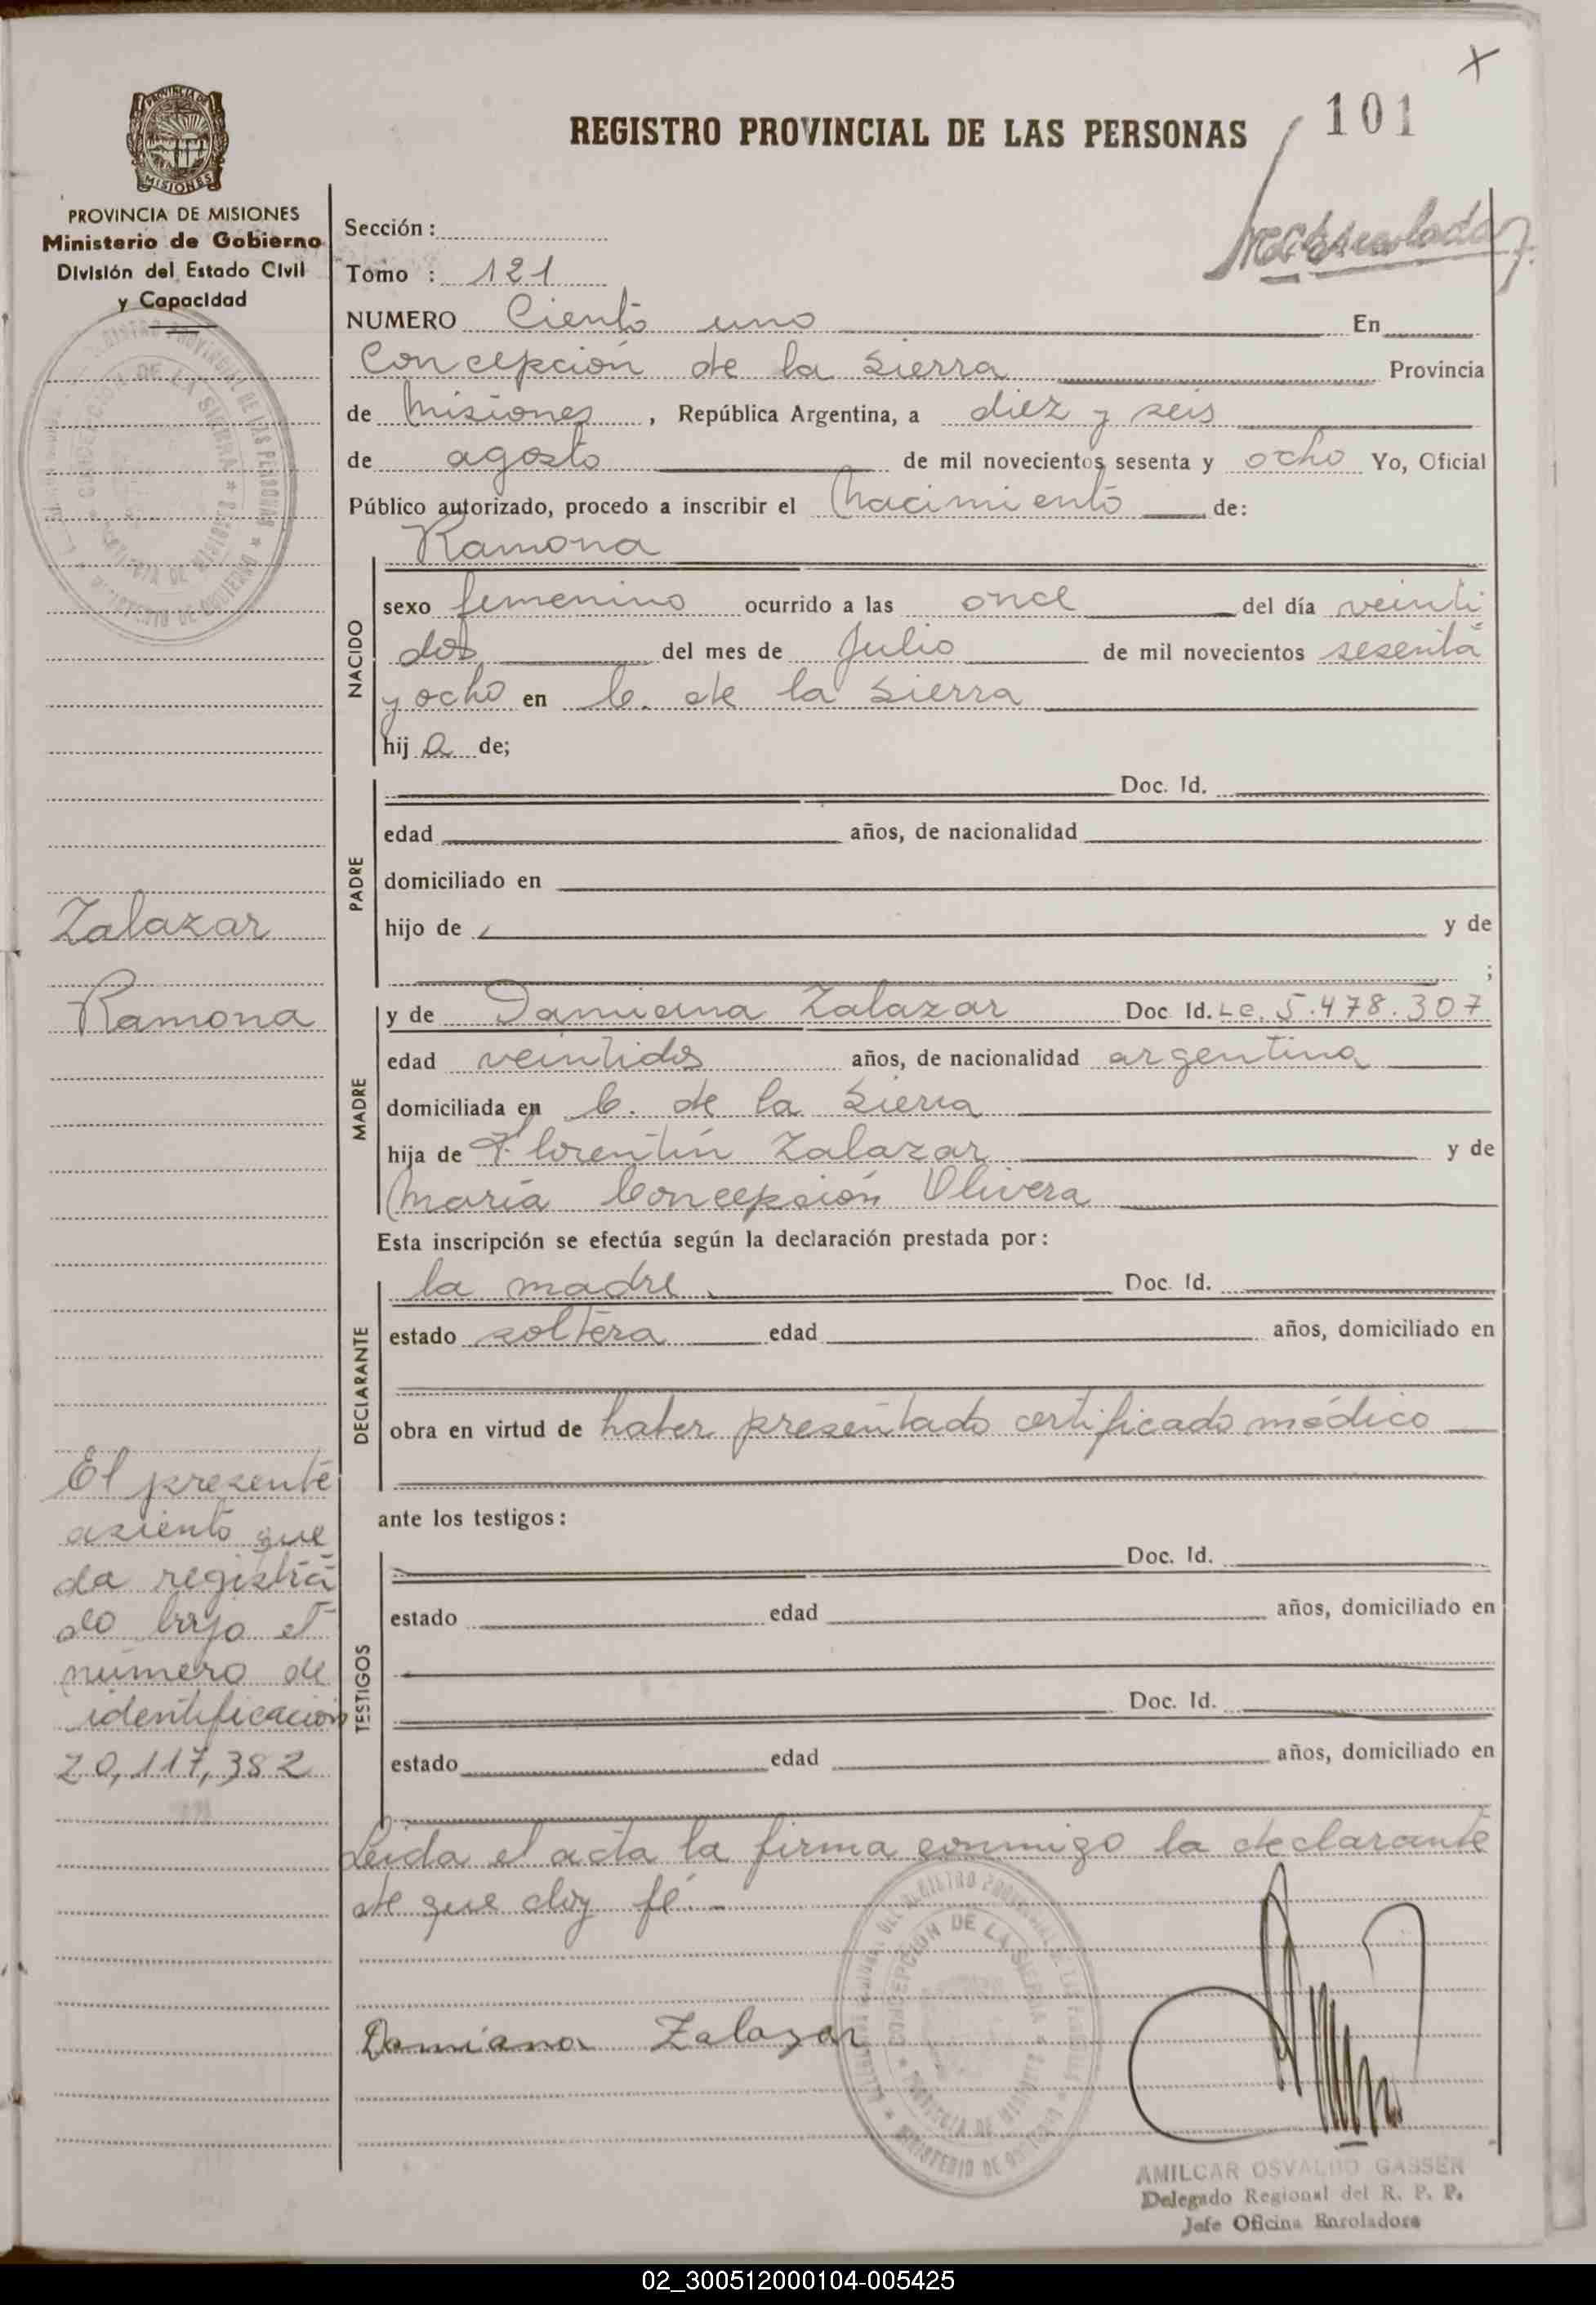 101
REGISTRO PROVINCIAL DE LAS PERSONAS
MISIONES
PROVINCIA DE MISIONES
Ministerio de Gobierno
División del Estado Civil
y Capacidad
Sección:
Tomo : 121
NUMERO Ciento uno En
Concepción de la Sierra Provincia
de Misiones, República Argentina, a diez y seis
de agosto de mil novecientos sesenta y ocho Yo, Oficial
Público autorizado, procedo a inscribir el Nacimiento de:
Ramona
NACIDO
sexo femenino ocurrido a las once del día veinti
dos del mes de Julio de mil novecientos sesenta
y ocho en C. de la Sierra
hij a de;
PADRE
Doc. Id.
edad años, de nacionalidad
domiciliado en
hijo de y de
;
Zalazar
Ramona
MADRE
y de Damiana Zalazar Doc Id. Lc. 5.478.307
edad veintidos años, de nacionalidad argentina
domiciliada en C. de la Sierra
hija de Florentín Zalazar y de
María Concepción Olivera
Esta inscripción se efectúa según la declaración prestada por:
DECLARANTE
la madre Doc. Id.
estado soltera edad años, domiciliado en
obra en virtud de haber presentado certificado médico
ante los testigos:
TESTIGOS
Doc. Id.
estado edad años, domiciliado en
Doc. Id.
estado edad años, domiciliado en
El presente
asiento que
da registra
do bajo el
número de
identificación
20,117,382
Leida el acta la firma conmigo la declarante
de que doy fé.-
Damiana Zalazar
CONCEPCION DE LA SIERRA
AMILCAR OSVALDO GASSEN
Delegado Regional del R. P. P.
Jefe Oficina Enroladora
02_300512000104-005425